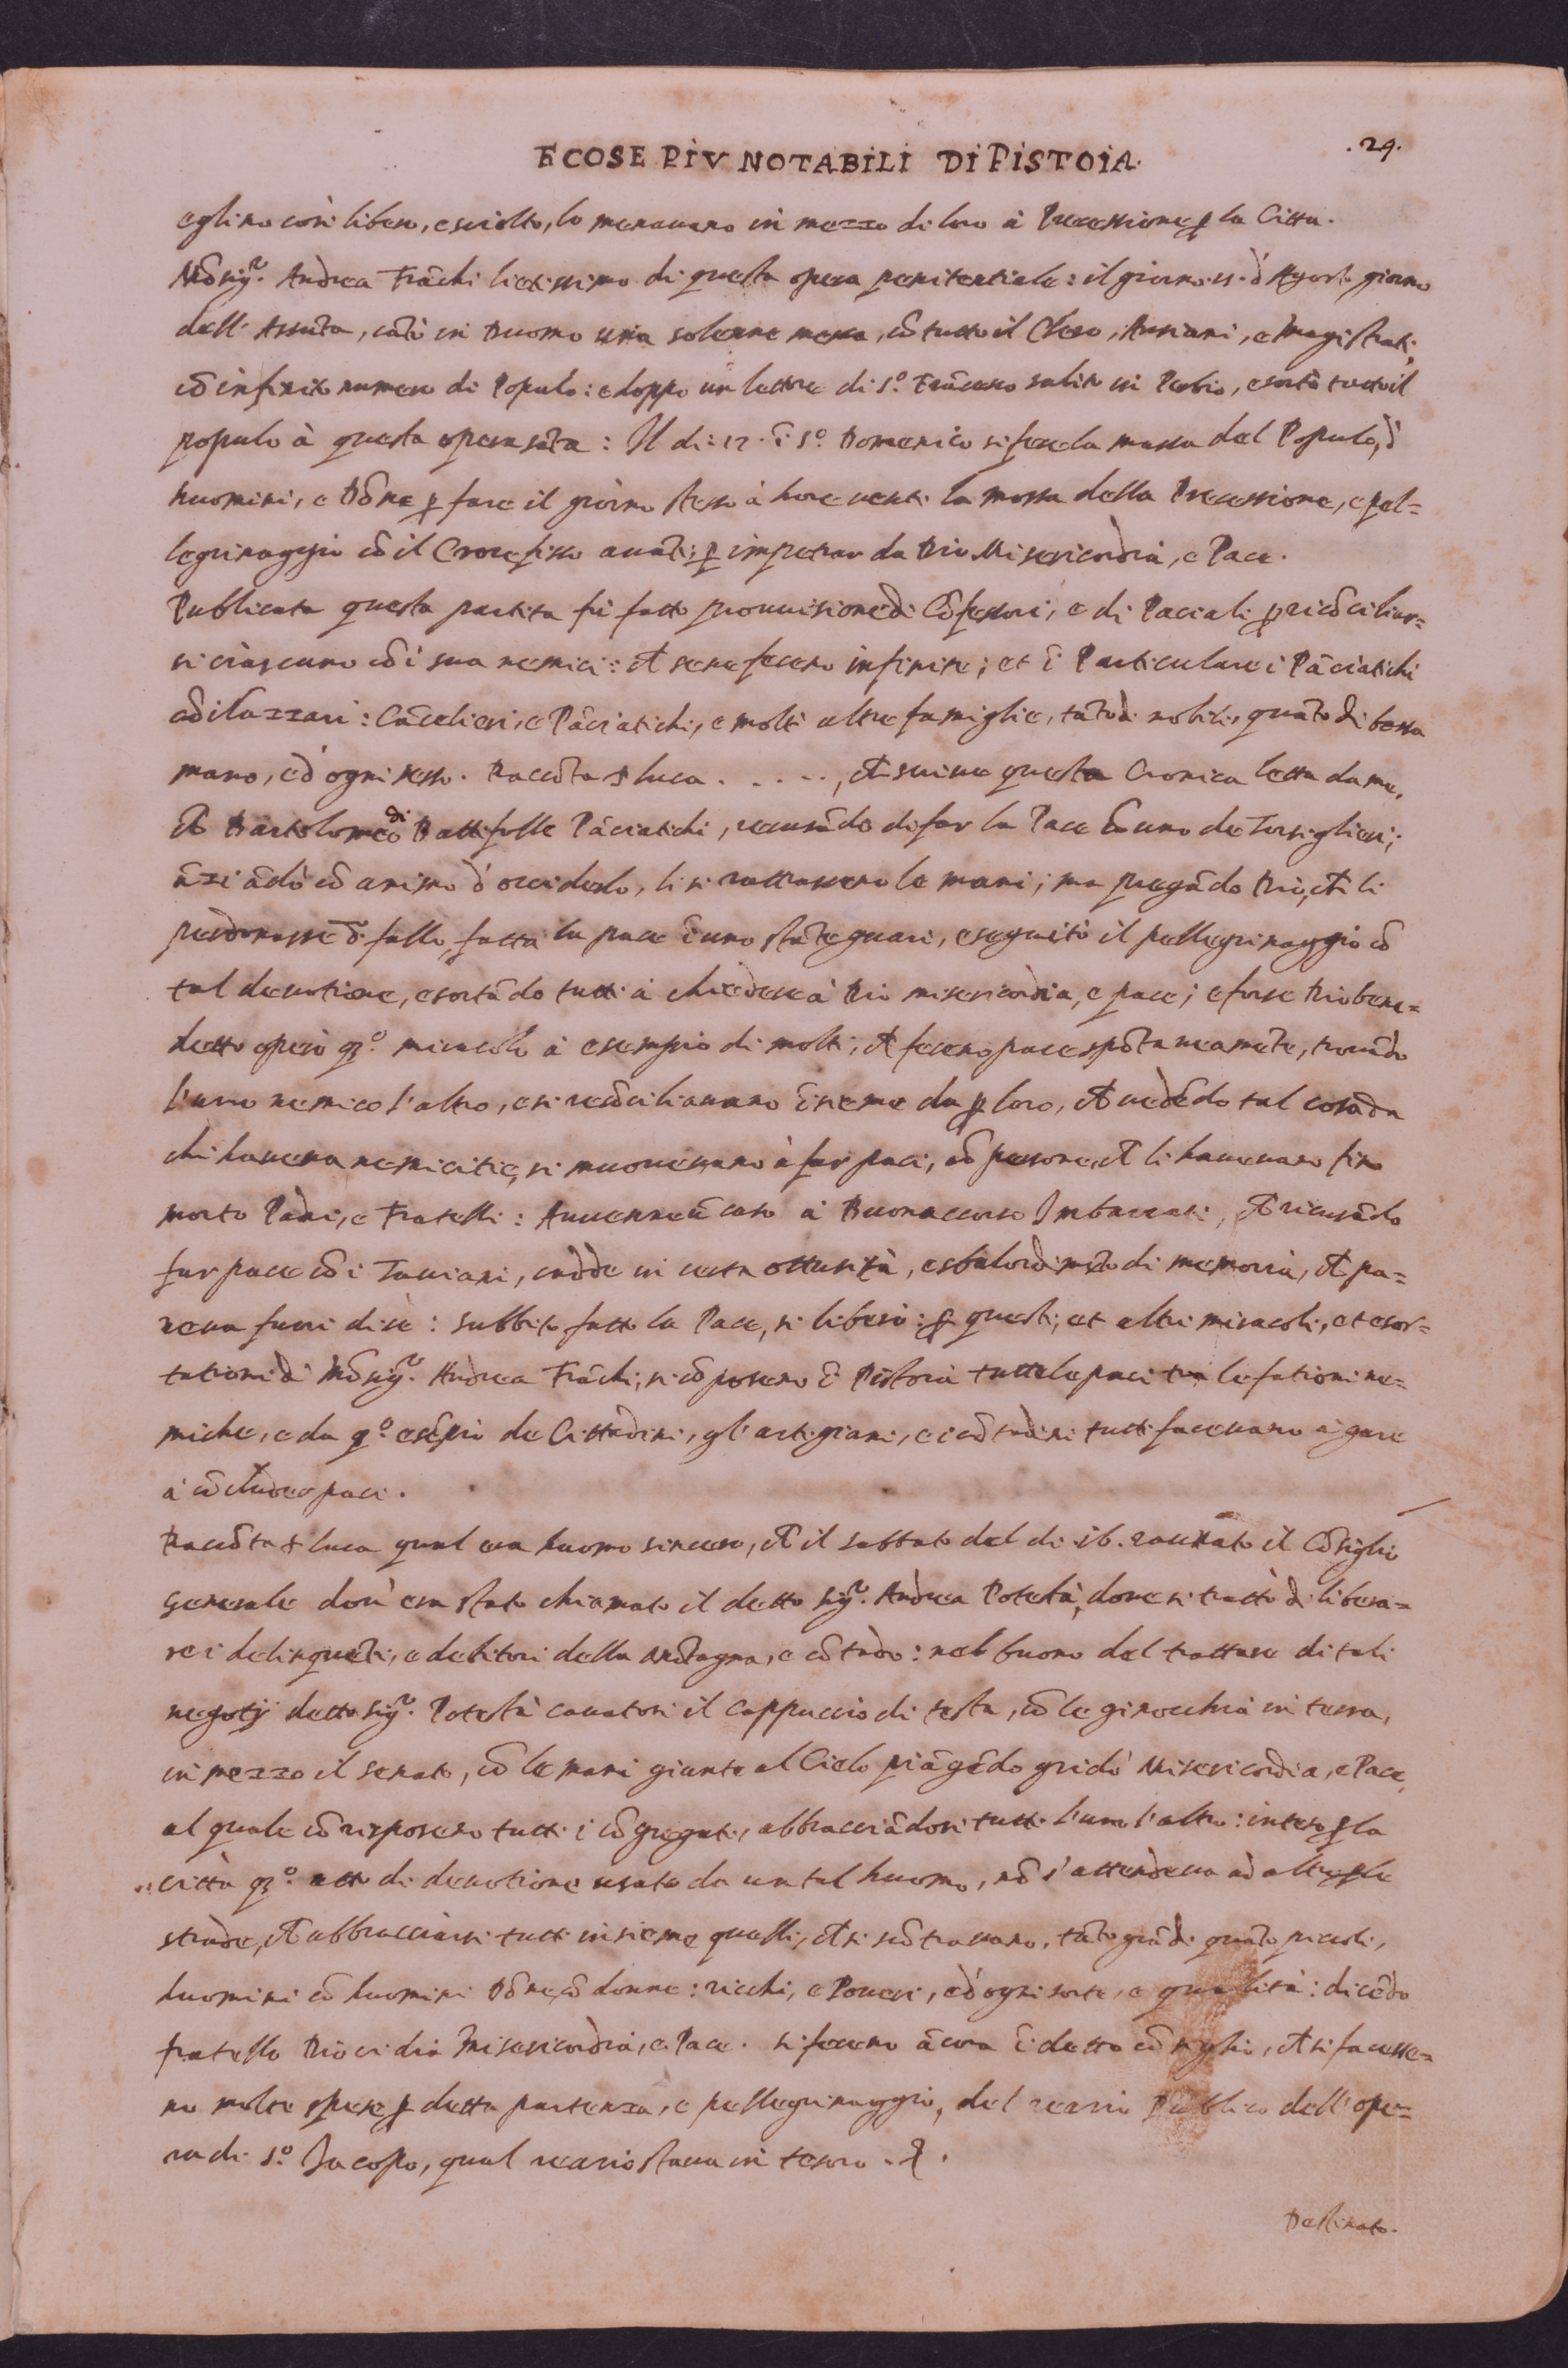 E COSE PIV NOTABILI DI PISTOIA.
.29.
eglino così libero, e sciolto, lo menavano in mezzo di loro à Processione ꝑ la Citta.
Mõsigʳ. Andrea Frãchi lietissimo di questa opera penitentiale: il giorno d'Agosto giorno
dell' Assũta, cãtò in Duomo una solenne messa, cõ tutto il Clero, Anziani, e Magistrati,
cõ infinito numero di Populo: e doppo un lettore di S.º Frãcesco salito in Perbio, esortò tutto il
populo à questa opera sãta: Il di: 17. ĩ S.º Domenico si fece la massa del Populo, d'
huomini, e Dõne ꝑ fare il giorno stesso à hore venti la mossa della Processione, e pel=
legrinaggio cõ il Crocefisso avãti, ꝑ impetrar da Dio Misericordia, e Pace.
Publicata questa partita fù fatto provvisione di Cõfessori, e di Paciali ꝑ ricõciliar=
si ciascuno cõ i sua nemici: ch̃ se ne fecero infinite; et ĩ Particulare i Pãciatichi
cõ i Lazzari: Cãcelieri, e Pãciatichi, e molti altre famiglie, tãto di nobili, quãto di bassa
mano, e d'ogni sesso. Raccõta s Luca . . . . ., ch̃ scrive questa Cronica letta da me,
ch̃ Bartolomeo di Battifolle Pãciatichi, recusãdo di far la Pace cõ uno de Torsiglieri;
ãzi ãdò cõ animo d'occiderlo, li si rattrassero le mani; ma pregãdo Dio, ch̃ li
perdonasse tal fallo, fatta la pace ĩ uno stãte guarì, e seguitò il pellegrinaggio cõ
tal devotione, esortãdo tutti à chiedere à Dio misericordia, e pace; e forse Dio bene=
detto operò q.º miracolo à esempio di molti, ch̃ fecero pace spõtaneamẽte, trovãdo
l'uno nemico l'altro, e si recõciliavano ĩsieme da ꝑ loro, ch̃ vedẽdo tal cosa da
chi haveva nemicitie, si muovevano à far paci, cõ persone, ch̃ li havevano fino
morto Padri, e Fratelli: Avvenne ũ caso à Buonaccorso Imbarcati, ch̃ ricusãdo
far pace cõ i Taviani, cadde in certa ottusità, e sbalordimẽto di memoria, ch̃ pa=
reva fuori di se: subbito fatto la Pace, si liberò: ꝑ questi, et altri miracoli, et esor=
tationi di Mõsigʳ. Andrea Frãchi, si cõposero ĩ Pistoia tutte le paci tra le fationi ne=
miche, e da q.º esẽpio de Cittadini, gl'artigiani, e i cõtadini tutti facevano à gara
à cõcluder paci.
Raccõta s Luca qual era huomo sincero, ch̃ il sabbato del di .16. raunato il Cõsiglio
Generale dov' era stato chiamato il detto Sigʳ. Andrea Potestà, dove si trattò di libera=
re i delinquẽti, e debitori della Mõtagna, e cõtado: nel buono del trattare di tali
negotij detto Sigʳ. Potestà cavatosi il cappuccio di testa, cõ le ginocchia in terra,
in mezzo il senato, cõ le mani giunte al Cielo piãgẽdo gridò Misericordia, e Pace,
al quale corrisposero tutti i cõgregati, abbracciãdosi tutti l'uno l'altro: inteso ꝑ la
città q.º atto di devotione usato da un tal huomo, nõ s'attendeva ad altro ꝑ le
strade, ch̃ abbracciarsi tutti insieme quelli, ch̃ si scõtravano, tãto grãdi quãto piccoli,
huomini cõ huomini Dõne, cõ donne: ricchi, e Poveri, e d'ogni sorte, e qualità: dicẽdo
fratello Dio ci dia Misericordia, e Pace. si fecero ãcora ĩ detto cõsiglio, ch̃ si facesse=
ro molte spese ꝑ detta partenza, e pellegrinaggio, del Publico dell' ope=
ra di S.º Jacopo, qual stava in tesoro.
Destinato.